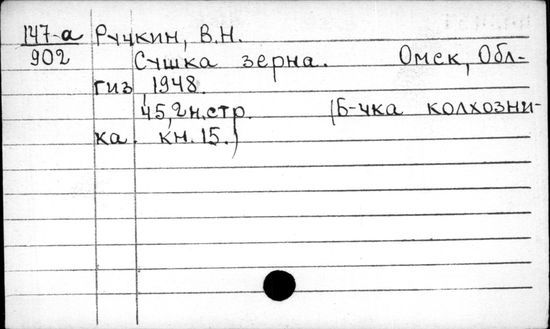 147-а Ручкин, В.Н.
902 Сушка зерна. Омск, Обл-
гиз, 1948.
45,2н.стр. (Б-чка колхозни-
ка. кн. 15.)